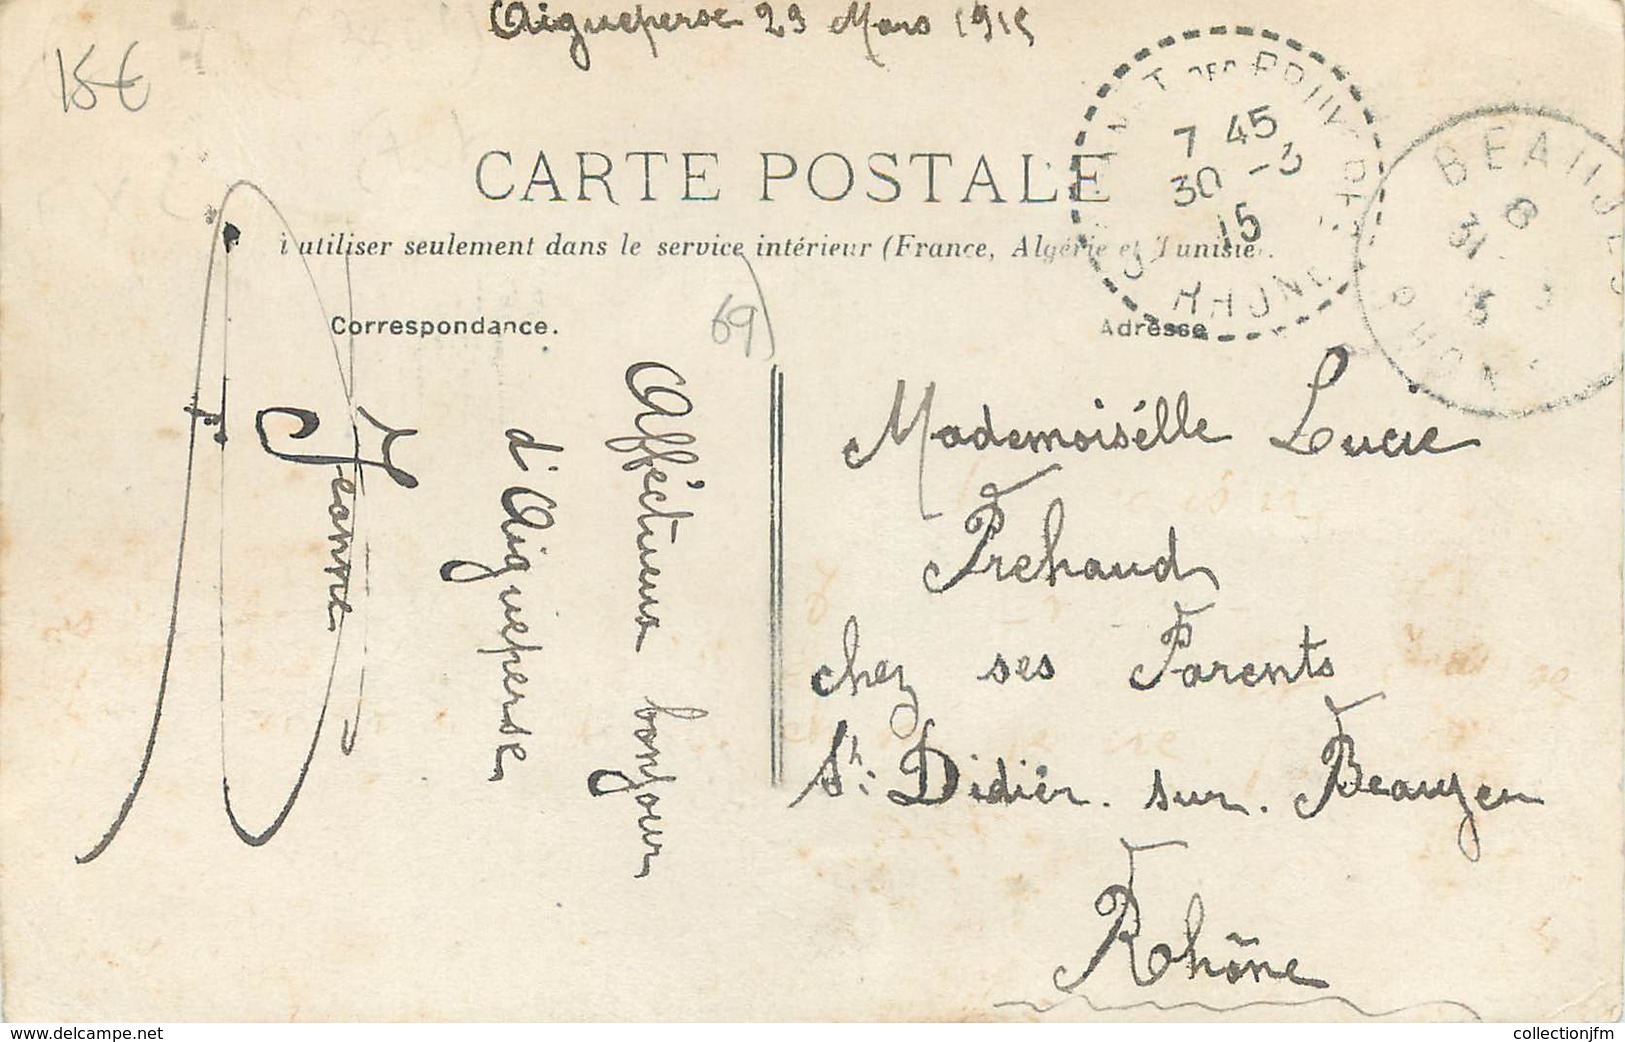 Aigueperse 29 Mars 1915
15€
CARTE POSTALE
à utiliser seulement dans le service intérieur (France, Algérie et Tunisie).
7 45
30 -3
15
RHONE
BEAUJEU
8
31 3
15
RHONE
69
Correspondance.
Adresse
Afféctueux bonjour
d'Aigueperse,
Jeanne
Mademoisélle Lucie
Prehaud
chez ses Parents
St: Didiér. sur. Beaujeu
Rhône
www.delcampe.net
collectionjfm